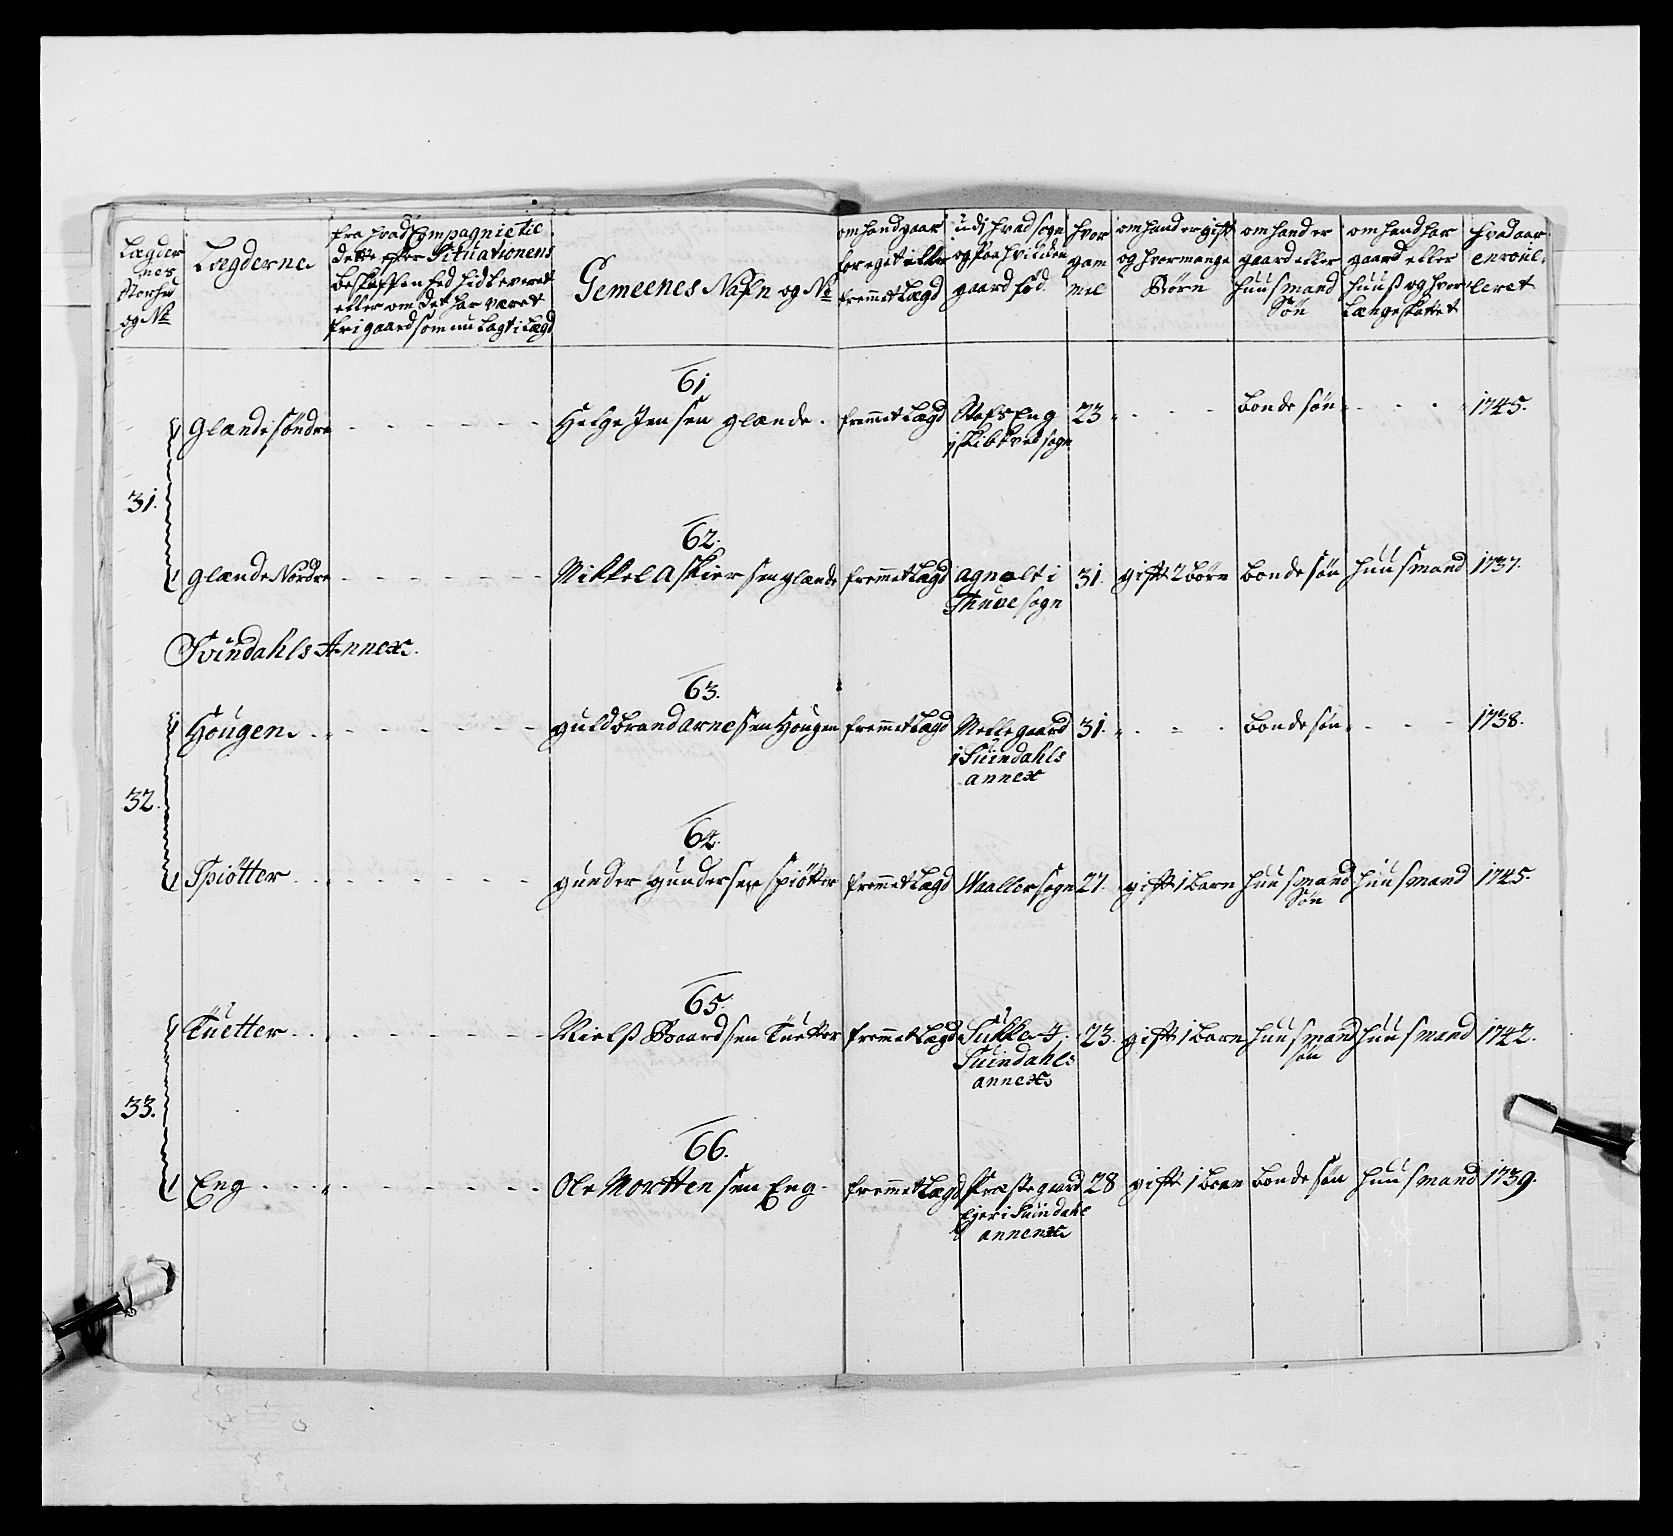 Lægder
nes
Norhu
og No
Lægderne
fra hvad Compagnie til
dette efter Situationens
beskaffenhed hidleveret
eller om det har været
frigaard som nu lagt i Lægd
Gemeenes Nafn og No
om hand gaar
for eget eller
fremmet Lægd
udi hvad sogn
og paa hvilcken
gaard fød
hvor
gam
mel
om hand er gift
og hvormange
Børn
om hand er
gaard eller
huusmand
Søn
om hand har
gaard eller
huuß og hvor
Længe hattet
hvad aar
enroul-
leret
31.
61
Glande søndre
Helge Jensen Glande.
fremmet Lægd
Stafs Eng
i Skibtvet sogn
23
bonde søn
1745.
62.
Glande Nordre
Mikkel Aslkiersen glande
fremmet Lægd
Agnalt i
Thuve sogn
31.
gift 2 børn
bonde søn
huusmand
1737.
Svindahls Annex.
32.
63.
Hougen
Guldbrand Arnessen Hougen
fremmet Lægd
Mellegaard
i Suindahls
annex
31.
bonde søn
1738.
64.
Spiøtter
Gunder Gundersen Spiøtter
fremmet Lægd
Waaller sogn
27.
gift 1 barn
huusmand
Søn
huusmand
1745.
33.
65.
Tuetter
Nielß Baardsen Tuetter
fremmet Lægd
Suindahls
annex
23.
gift 1 barn
huusmand
søn
huusmand
1742.
66.
Eng
Ole Morttensen Eng
fremmet Lægd
Præstegaard
Eger i Suindahl
annex
28
gift 1 barn
bonde søn
huusmand
1739.